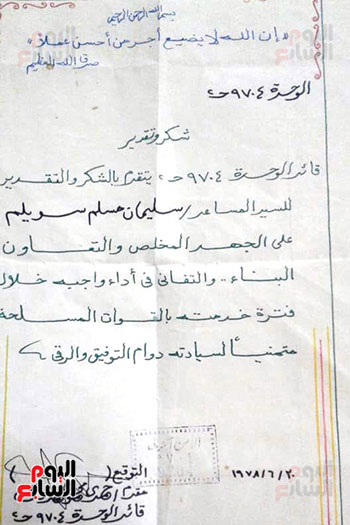 بسم الله الرحمن الرحيم
«إن الله لا يضيع أجر من أحسن عملا»
صدق الله العظيم
الوحدة ٩٧٠٤ حـ
شكر وتقدير
قائد الوحدة ٩٧٠٤ حـ يتقدم بالشكر والتقدير
للسيد المساعد / سليمان مسلم سويلم
على الجهد المخلص والتعاون
البناء .. والتفانى فى أداء واجبه خلال
فترة خدمته بالقوات المسلحة
متمنياً لسيادته دوام التوفيق والرقى
١٩٧٨/٦/٢٠
التوقيع (
مقدم /
قائد الوحدة ٩٧٠٤ حـ
اليوم السابع